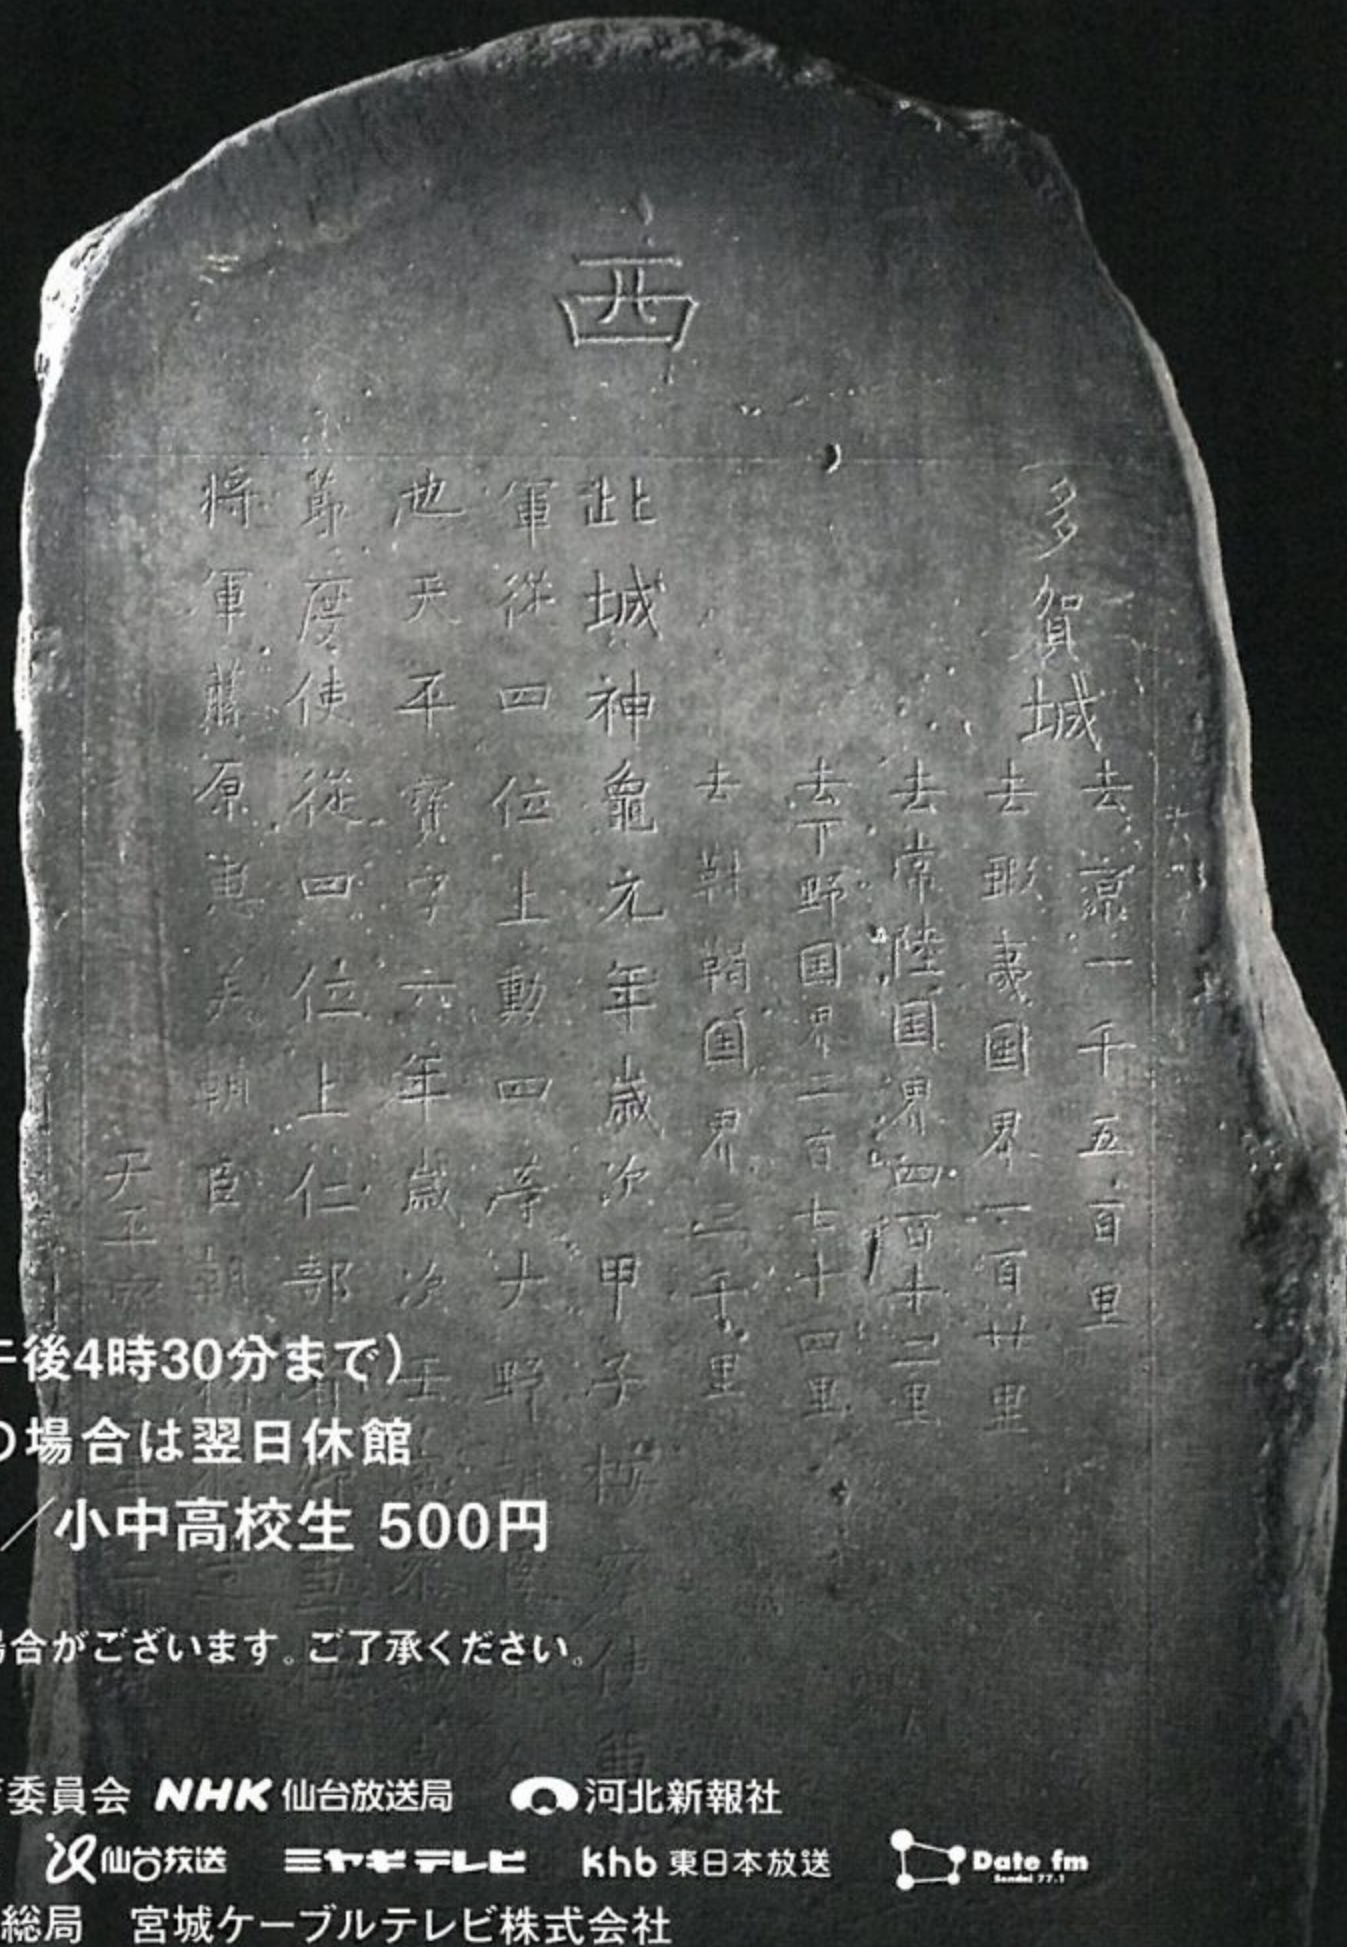 西
多賀城
去京一千五百里
去蝦夷国界一百廿里
去常陸国界四百十二里
去下野国界二百七十四里
去靺鞨国界三千里
此城神龜元年歳次甲子按察使
軍從四位上勳四等大野朝
也天平寳字六年歳次壬
節度使從四位上仁部
將軍藤原惠美朝臣朝
天平寳
午後4時30分まで）
の場合は翌日休館
／小中高校生 500円
場合がございます。ご了承ください。
委員会 NHK 仙台放送局 河北新報社
仙台放送 ミヤギテレビ khb 東日本放送 Date fm Sendai 77.1
総局 宮城ケーブルテレビ株式会社